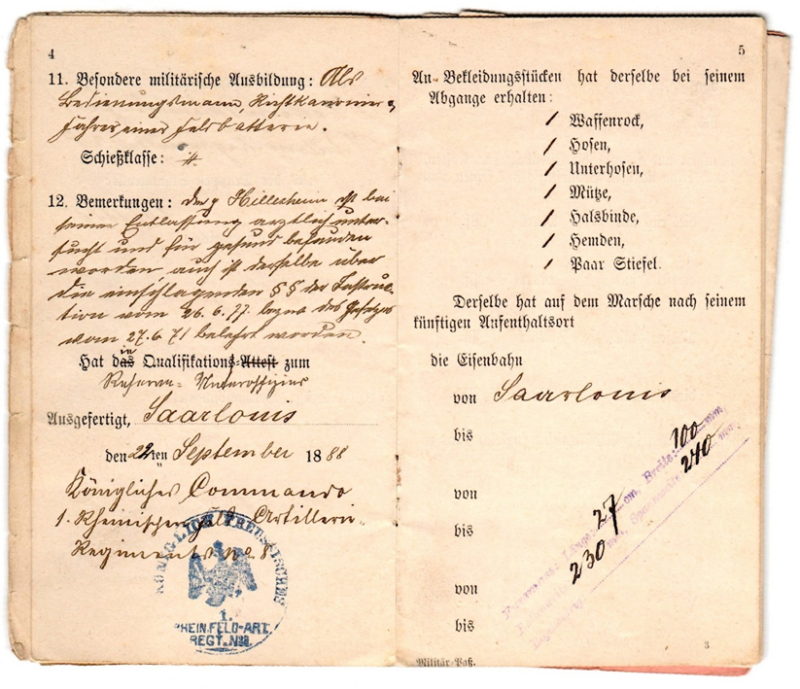 4
11. Besondere militärische Ausbildung: Als
Bedienungsmann, Richtkanonier,
Fahrer einer Feldbatterie.
Schießklasse: II.
12. Bemerkungen: Der p Hillesheim ist bei
seiner Entlassung arztlich unter-
sucht und für gesund befunden
worden auch ist derselbe über
die einschlagenden §§ der Instruc
tion vom 26.6.77. bezw. des Gesetzes
vom 27.6.71 belehrt worden.
Hat das die Qualifikations-Attest zum
Reserve-Unteroffizier
Ausgefertigt, Saarlouis
den 22ten September 1888
Königliches Commando
1. Rheinischen Feld Artillerie-
Regiments No. 8
KÖNIGLICH PREUSSISCHES
1.
RHEIN.FELD-ART.
REGT. No 8.
5
An Bekleidungsstücken hat derselbe bei seinem
Abgange erhalten:
1 Waffenrock,
1 Hosen,
1 Unterhosen,
1 Mütze,
1 Halsbinde,
1 Hemden,
1 Paar Stiefel.
Derselbe hat auf dem Marsche nach seinem
künftigen Aufenthaltsort
die Eisenbahn
von Saarlouis
bis
von
bis
von
bis
Länge: 27 cm, Breite: 100 mm
230 240
3
Militär-Paß.